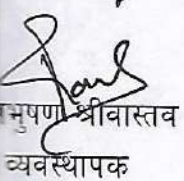 भुषण श्रीवास्तव
व्यवस्थापक